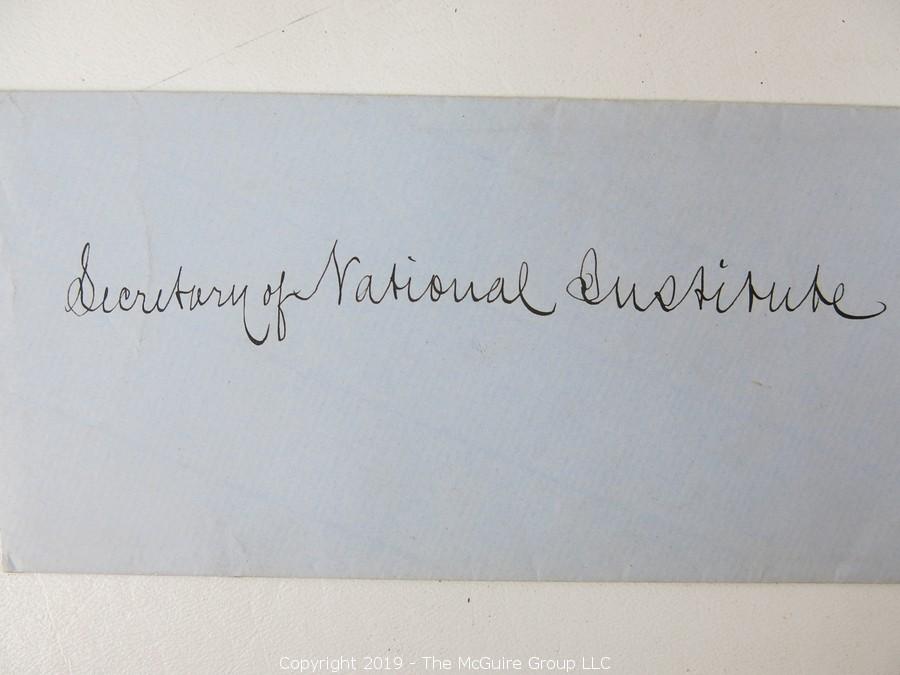 Secretary of National Institute
Copyright 2019 - The McGuire Group LLC